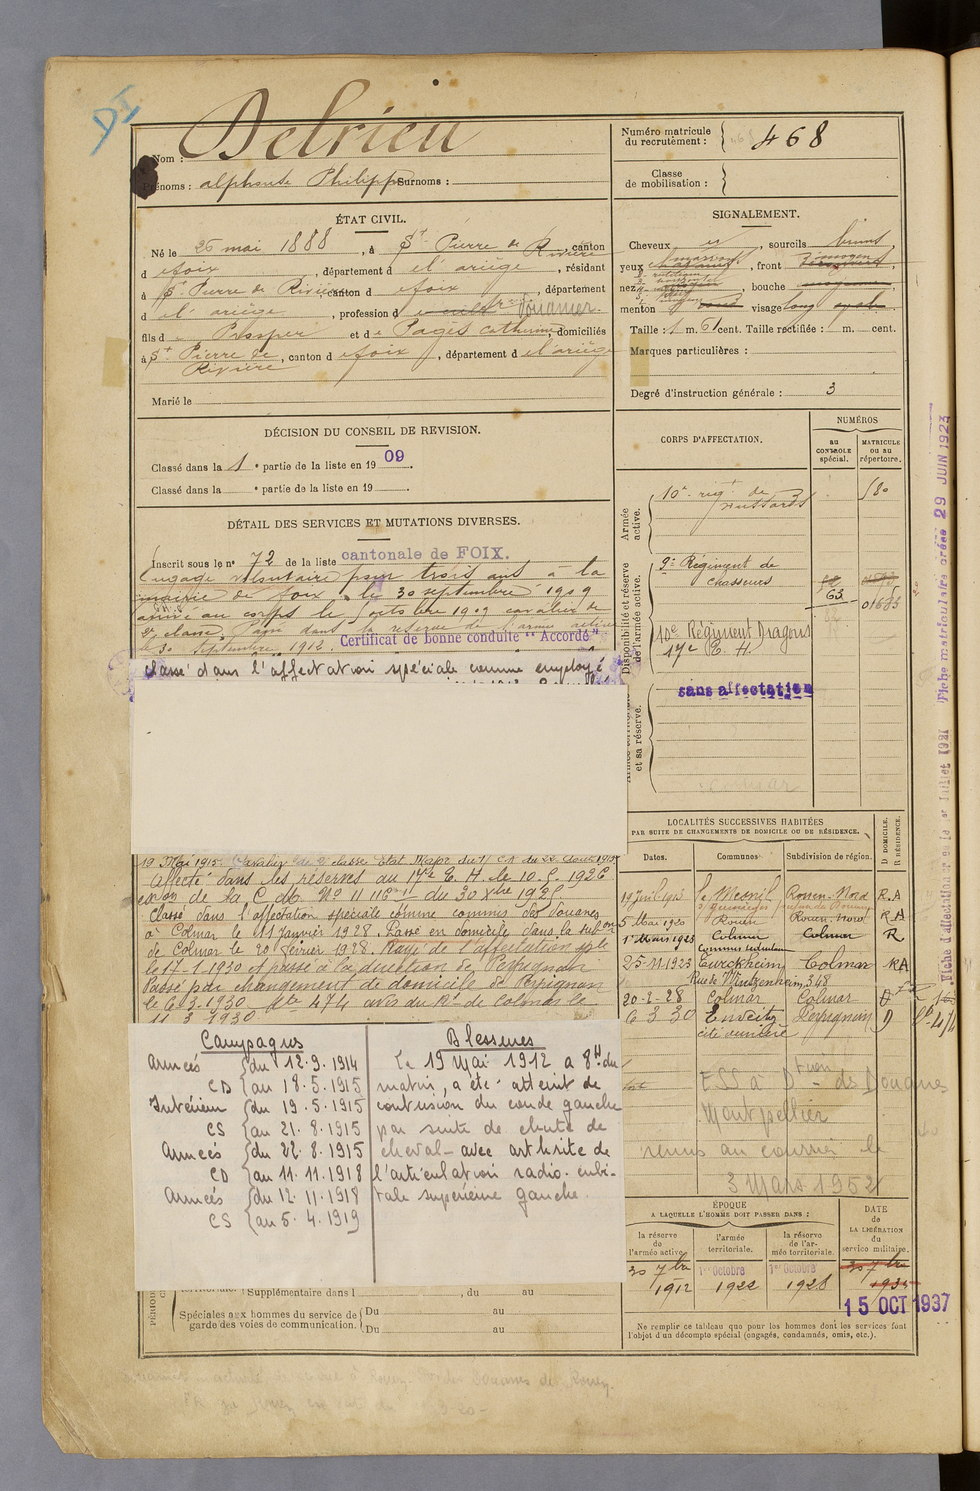 Delrieu
Nom :
Prénoms : alphonse Philippe Surnoms :
Numéro matricule du recrutement : 468
Classe de mobilisation :
ÉTAT CIVIL.
Né le 26 mai 1888, à St Pierre de Rivière, canton
d e foix, département d e l'ariège, résidant
à St Pierre de Rivière, canton d e foix, département
d e l'ariège, profession d Douanier.
fils d e Prosper et de Pagès Catherine, domiciliés
à St Pierre de Rivière, canton d e foix, département d e l'ariège
Marié le
SIGNALEMENT.
Cheveux , sourcils bruns,
yeux marrons, front moyen,
nez , bouche ,
menton visage long
Taille : 1 m. 61 cent. Taille rectifiée : m. cent.
Marques particulières :
Degré d'instruction générale : 3
DÉCISION DU CONSEIL DE REVISION.
Classé dans la 1e partie de la liste en 1909.
Classé dans la e partie de la liste en 19 .
DÉTAIL DES SERVICES ET MUTATIONS DIVERSES.
Inscrit sous le no 72 de la liste cantonale de FOIX.
Engagé volontaire pour trois ans à la
mairie de foix, le 30 septembre 1909
arrivé au corps le 1 octobre 1909 cavalier de
2e classe. Passé dans la réserve de l'armée active
le 30 septembre 1912. Certificat de bonne conduite "Accordé"
classé dans l'affectation spéciale comme employé
19 Mai 1915. Cavalier de 2e classe Etat Major du
Affecté dans les réserves au 17e E. H. le
de la C du No 11 du 30 Xbre 1925
Classé dans l'affectation spéciale comme commis des douanes
à Colmar le 11 janvier 1928. Passé en domicile dans la subon
de Colmar le 20 février 1928. Rayé de l'affectation sple
le 17-1-1930 et passé à la direction de Perpignan
Passé par changement de domicile de Perpignan
le 6.3.1930 474 avis du Rt de Colmar le
11 3 1930
CORPS D'AFFECTATION.
NUMÉROS
au CONTROLE spécial.
MATRICULE ou au répertoire.
Armée active.
10e régt de Hussards
180
Disponibilité et réserve de l'armée active.
9e Régiment de Chasseurs
63
01683
10e Régiment Dragons
17e E. H.
et sa réserve.
sans affectation
LOCALITÉS SUCCESSIVES HABITÉES
PAR SUITE DE CHANGEMENTS DE DOMICILE OU DE RÉSIDENCE.
Dates. Communes. Subdivision de région. D DOMICILE. R RÉSIDENCE.
Le Mesnil Rouen-Nord R.A
5 Mai 1920 Rouen Rouen Nord RA
1er Mars 1923 Colmar Colmar R
25-11 1923 Turckheim Colmar RA
Rue de Wintzenheim, 348
20-2-28 Colmar Colmar D
6 3 30 Enveitg Perpignan D
cité ouvrière
ESS à Dtion des Douanes
Montpellier
revenu au courrier le
3 Mars 1952
ÉPOQUE
A LAQUELLE L'HOMME DOIT PASSER DANS :
la réserve de l'armée active
l'armée territoriale.
la réserve de l'armée territoriale.
DATE de LA LIBÉRATION du service militaire.
30 7bre 1912
1er Octobre 1922
1er Octobre 1928
30 7bre 1935
15 OCT 1937
Ne remplir ce tableau que pour les hommes dont les services font
l'objet d'un décompte spécial (engagés, condamnés, omis, etc.).
Campagnes
Armées du 12.9.1914
CD au 18.5.1915
Intérieur du 19.5.1915
CS au 21.8.1915
Armées du 22.8.1915
CD au 11.11.1918
Armées du 12.11.1918
CS au 5.4.1919
Blessures
Le 19 Mai 1912 a 8H du
matin, a été atteint de
contusion du coude gauche
par suite de chute de
cheval - avec arthrite de
l'articulation radio-cubi-
tale supérieure gauche.
Supplémentaire dans l , du au
Spéciales aux hommes du service de garde des voies de communication.
Du au
Du au
Fiche matriculaire créée 29 JUIN 1923